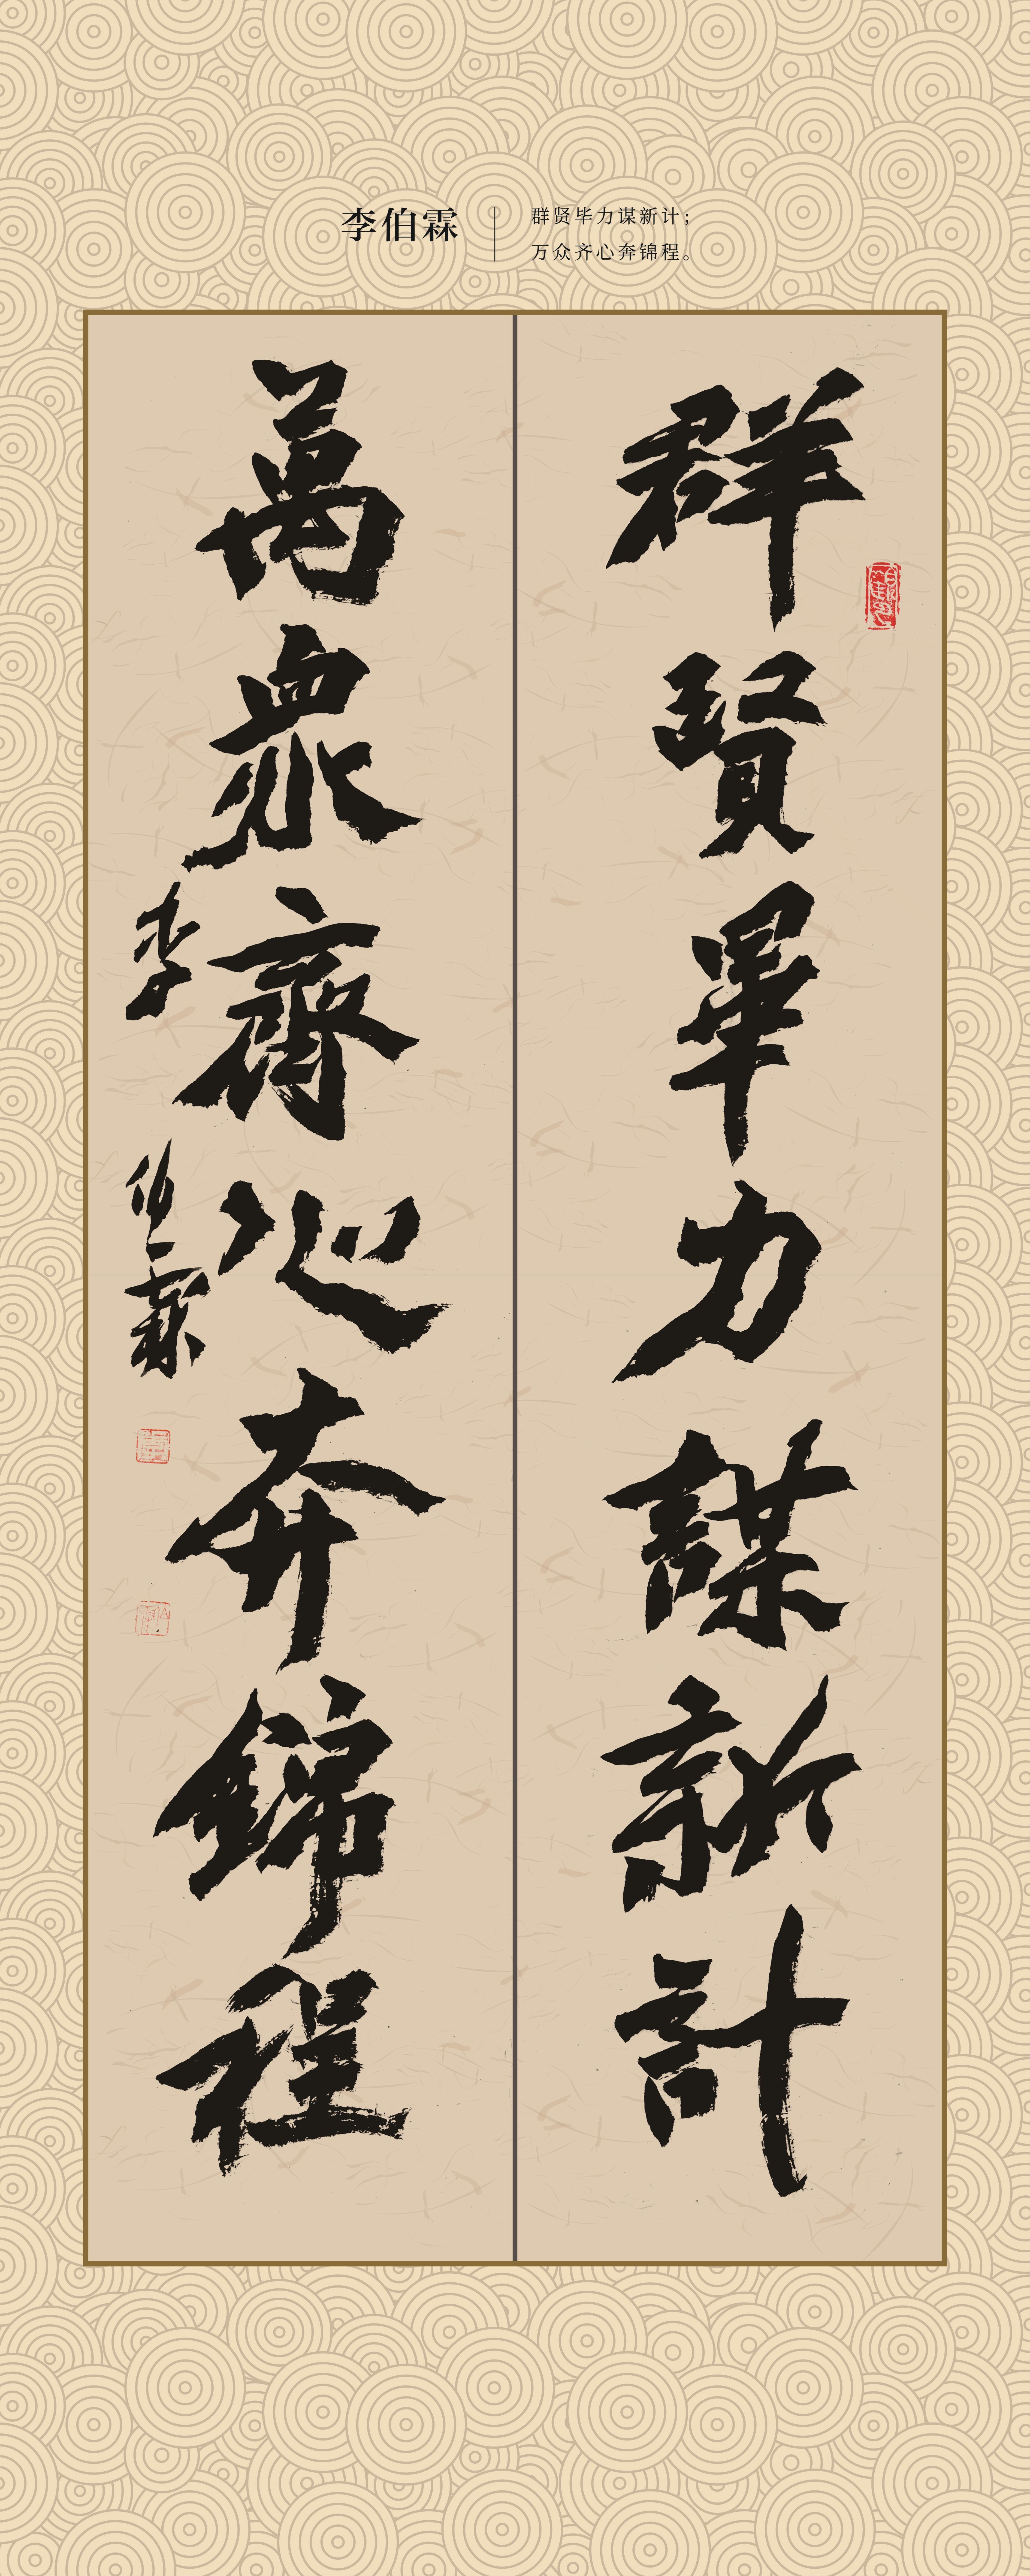 李伯霖
群贤毕力谋新计；
万众齐心奔锦程。
群賢畢力謀新計
萬衆齊心奔錦程
李伯霖